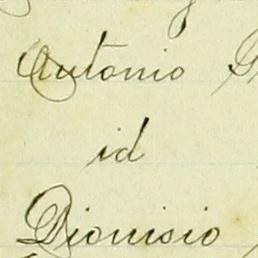 Antonio
id
Dionisio